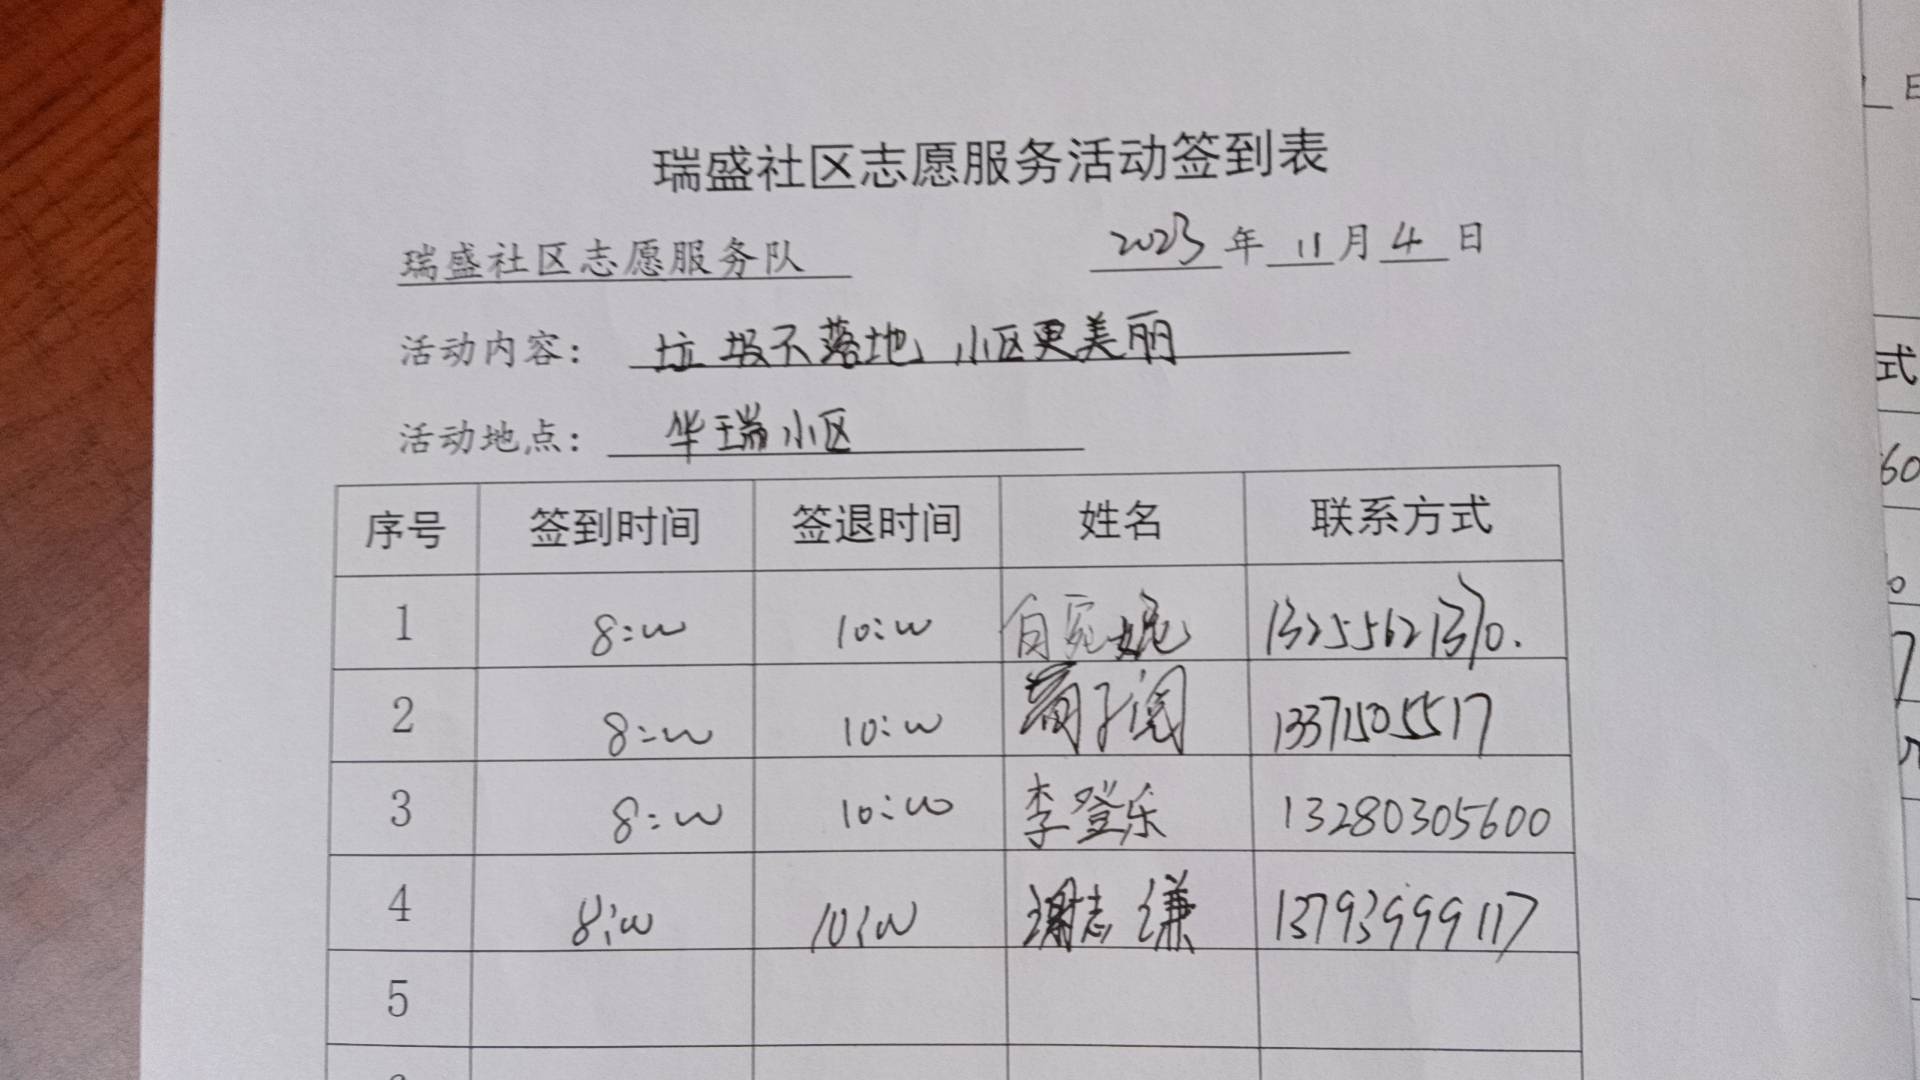 瑞盛社区志愿服务活动签到表
瑞盛社区志愿服务队 2023年11月4日
活动内容: 垃圾不落地 小区更美丽
活动地点: 华瑞小区
序号 签到时间 签退时间 姓名 联系方式
1 8:00 10:00 13255621370.
2 8:00 10:00 13371505517
3 8:00 10:00 李登乐 13280305600
4 8:00 10:00 谢志谦 13793999117
5
日
式
60
0
7